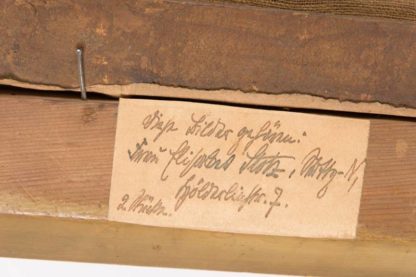 Diese Bilder gehören:
Frau Elisabet Stotz, Stuttg-N,
Hölderlinstr. 7.
2 Stück.